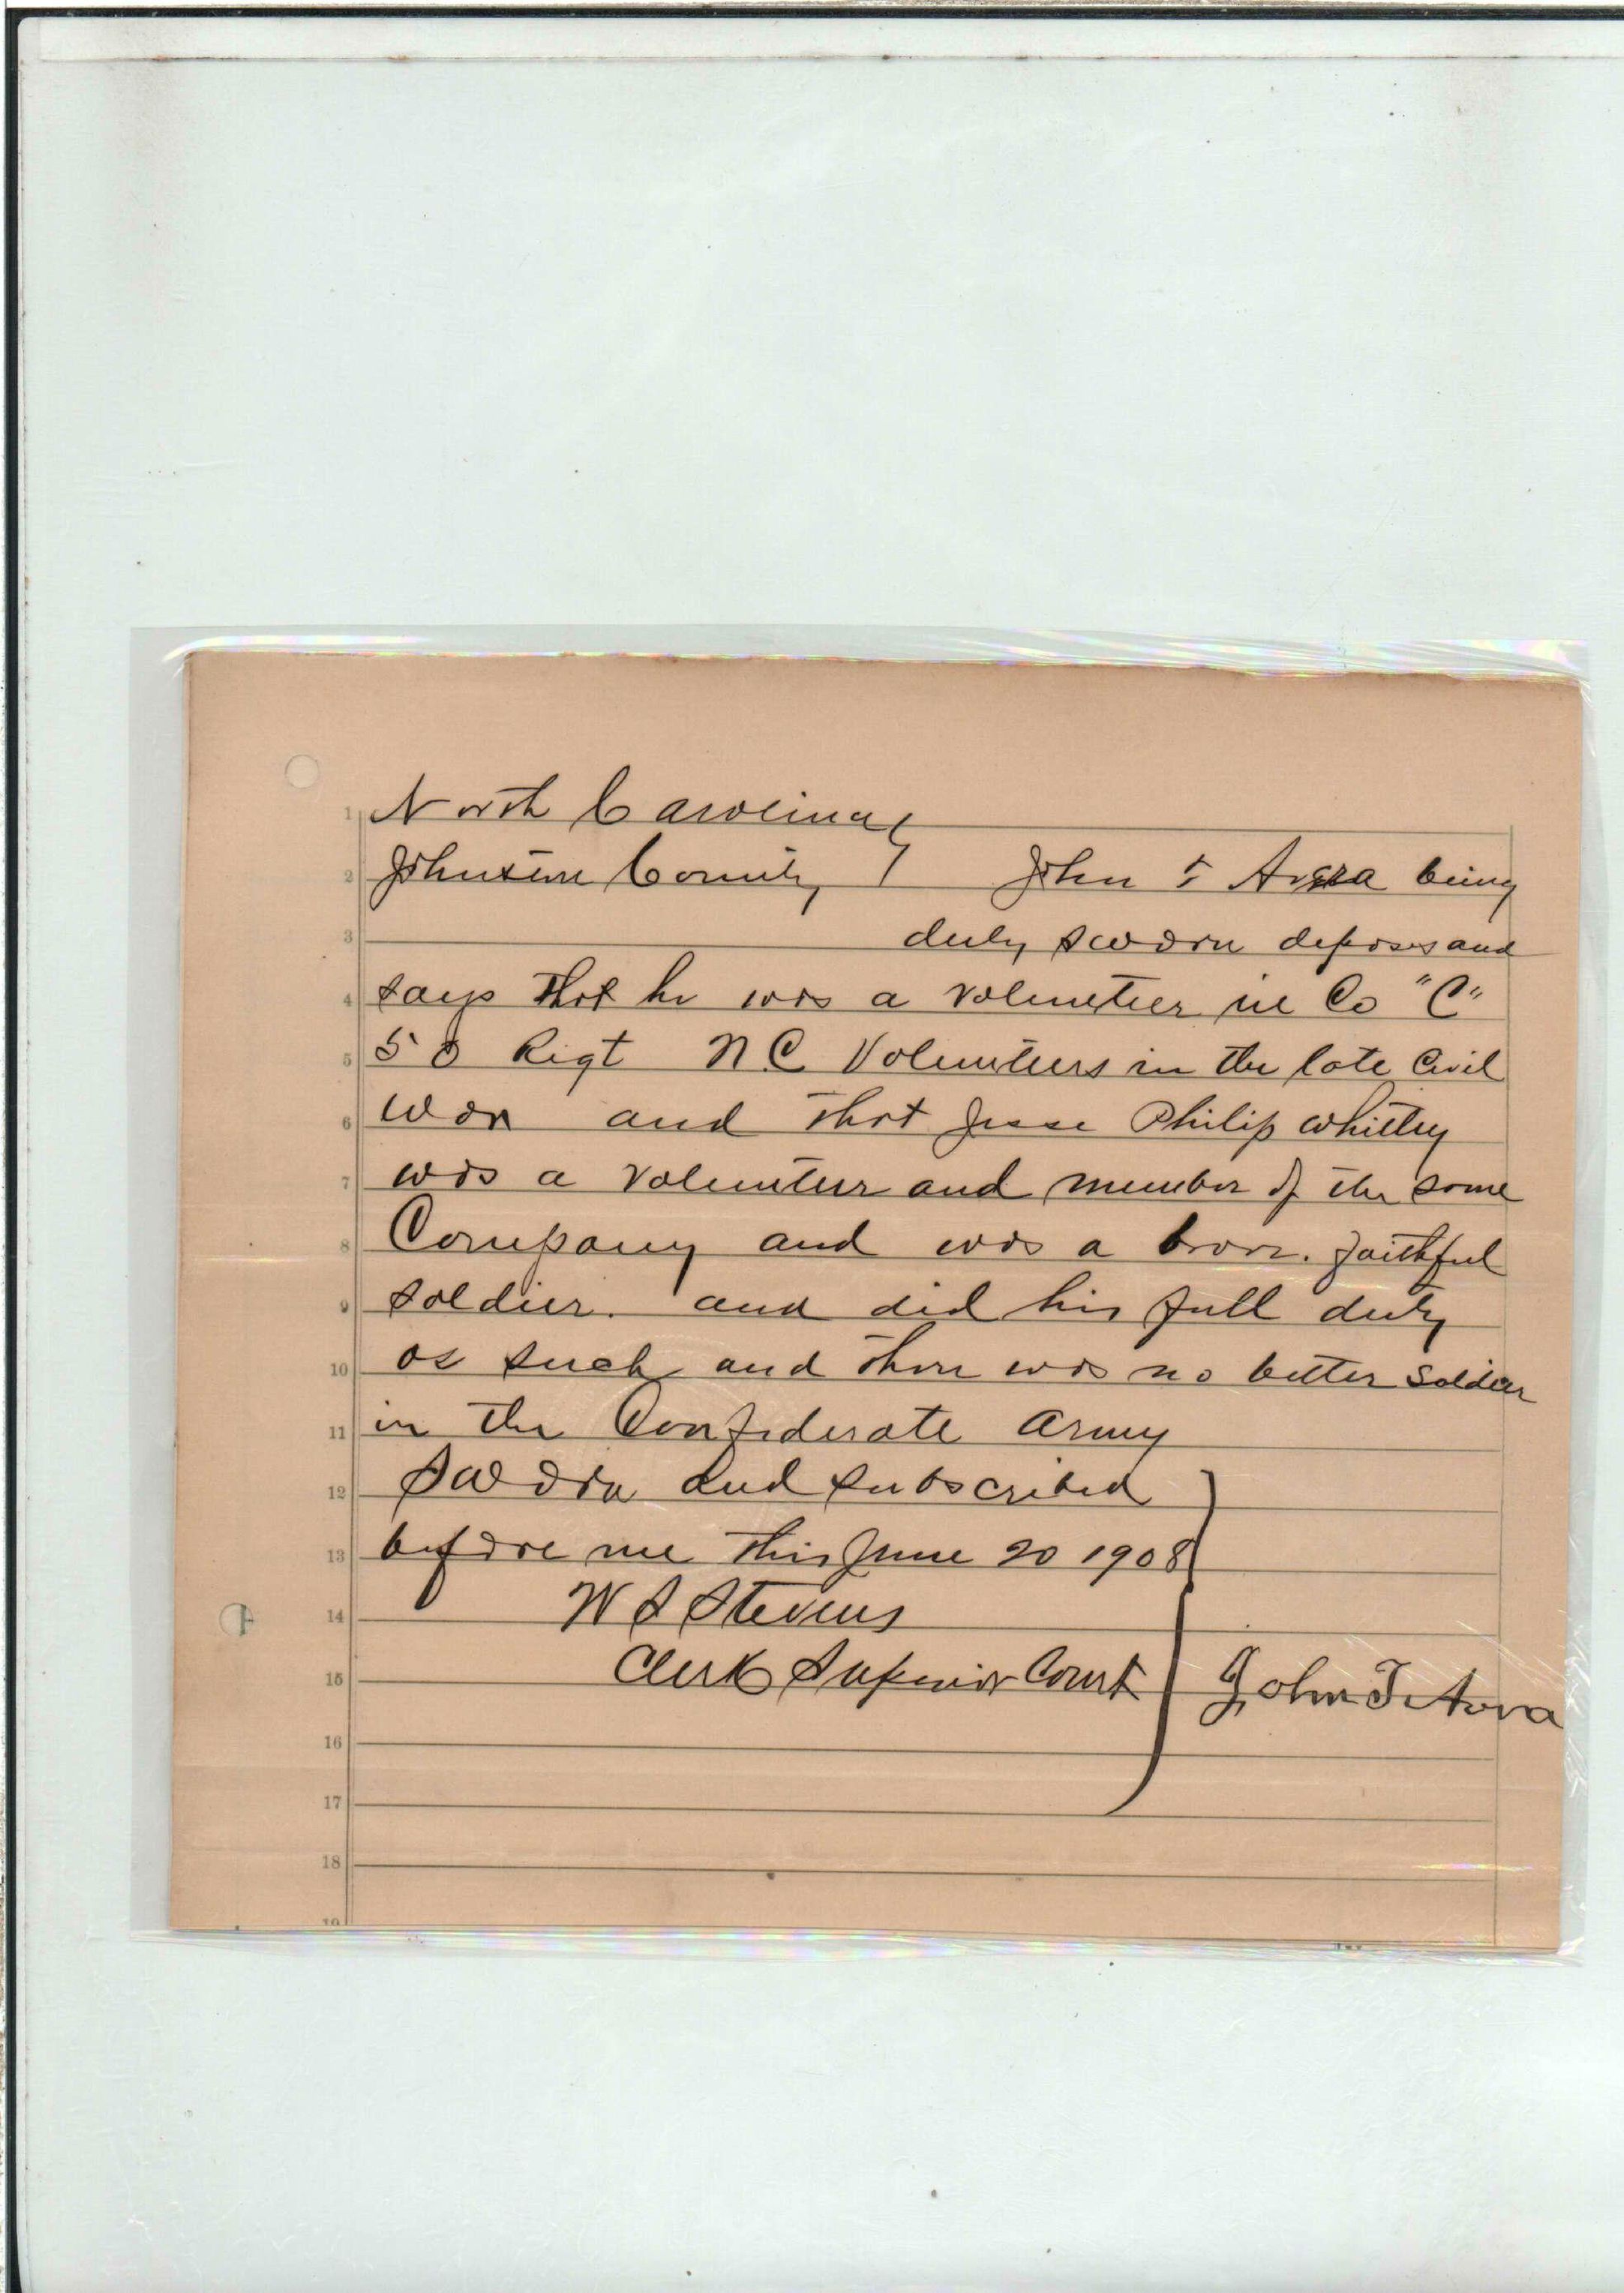 1 North Carolina
2 Johnston County John T Avera being
3 duly sworn deposes and
4 says that he was a volunteer in Co "C"
5 50 Regt N C Volunteers in the late Civil
6 War and that Jesse Philip Whitley
7 was a volunteer and member of the same
8 Company and was a brave. faithful
9 soldier. and did his full duty
10 as such and there was no better soldier
11 in the Confederate Army
12 Sworn and subscribed
13 before me this June 20 1908
14 W S Stevens
15 Clerk Superior Court John T Avera
16
17
18
19